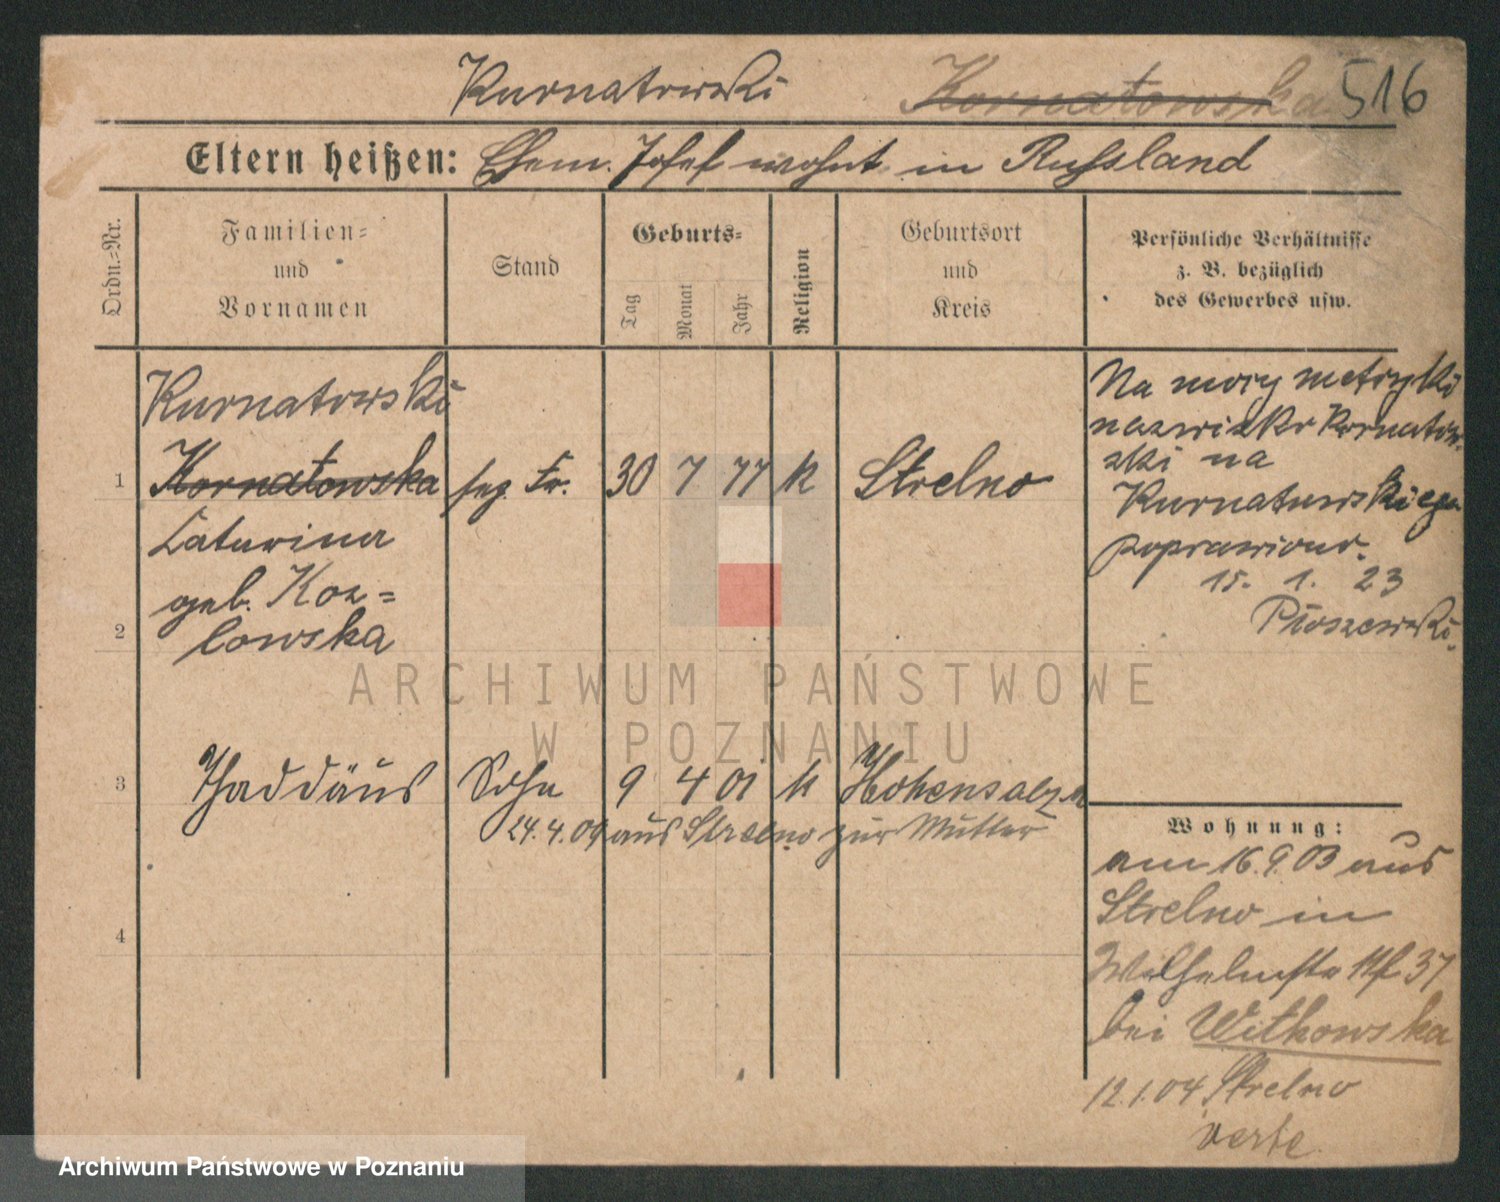 Kurnatowski Kornatowska 516
Eltern heißen: Ehem. Josef wohnt in Russland
Ordn.-Nr.
Familien-
und
Vornamen
Stand
Geburts-
Tag
Monat
Jahr
Religion
Geburtsort
und
Kreis
Persönliche Verhältnisse
z. B. bezüglich
des Gewerbes usw.
Kurnatowski
1 Kornatowska Fr. 30 7 77 k Strelno
Catarina
geb. Koz=
2 lowska
Na mocy metryki
nazwisko Kornatow-
ski na
Kurnatowskiego
poprawiono.
15. 1. 23
3 Thaddäus Sohn 9 4 01 k Hohensalza
24.4.04 aus Strelno zur Mutter
4
Wohnung:
am 16.9.03 aus
Strelno in
37
bei Witkowska
12.1.04 Strelno
verte
ARCHIWUM PAŃSTWOWE
W POZNANIU
Archiwum Państwowe w Poznaniu